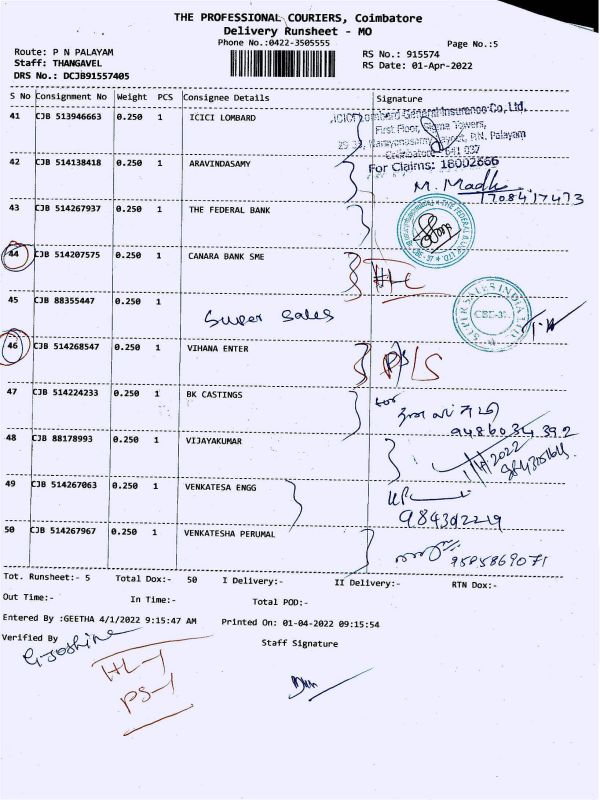 THE PROFESSIONAL COURIERS, Coimbatore
Delivery Runsheet - MO
Phone No.:0422-3505555
Page No.:5
Route: P N PALAYAM
RS No.: 915574
Staff: THANGAVEL
RS Date: 01-Apr-2022
DRS No.: DCJB91557405
S No Consignment No Weight PCS Consignee Details Signature
41 CJB 513946663 0.250 1 ICICI LOMBARD
ICICI Lombard General Insurance Co. Ltd.
First Floor, Towers,
P.N. Palayam
641 037
For Claims: 18002666
42 CJB 514138418 0.250 1 ARAVINDASAMY
M. Madh
1708417473
43 CJB 514267937 0.250 1 THE FEDERAL BANK
44 CJB 514207575 0.250 1 CANARA BANK SME HL
45 CJB 88355447 0.250 1 Super Sales
SUPER SALES INDIA LTD
CBE-37
46 CJB 514268547 0.250 1 VIHANA ENTER P/S
47 CJB 514224233 0.250 1 BK CASTINGS for
9486034392
48 CJB 88178993 0.250 1 VIJAYAKUMAR
49 CJB 514267063 0.250 1 VENKATESA ENGG
984302219
50 CJB 514267967 0.250 1 VENKATESHA PERUMAL
9585869071
Tot. Runsheet:- 5 Total Dox:- 50 I Delivery:- II Delivery:- RTN Dox:-
Out Time:- In Time:- Total POD:-
Entered By :GEETHA 4/1/2022 9:15:47 AM Printed On: 01-04-2022 09:15:54
Verified By Staff Signature
HL-1
PS-1